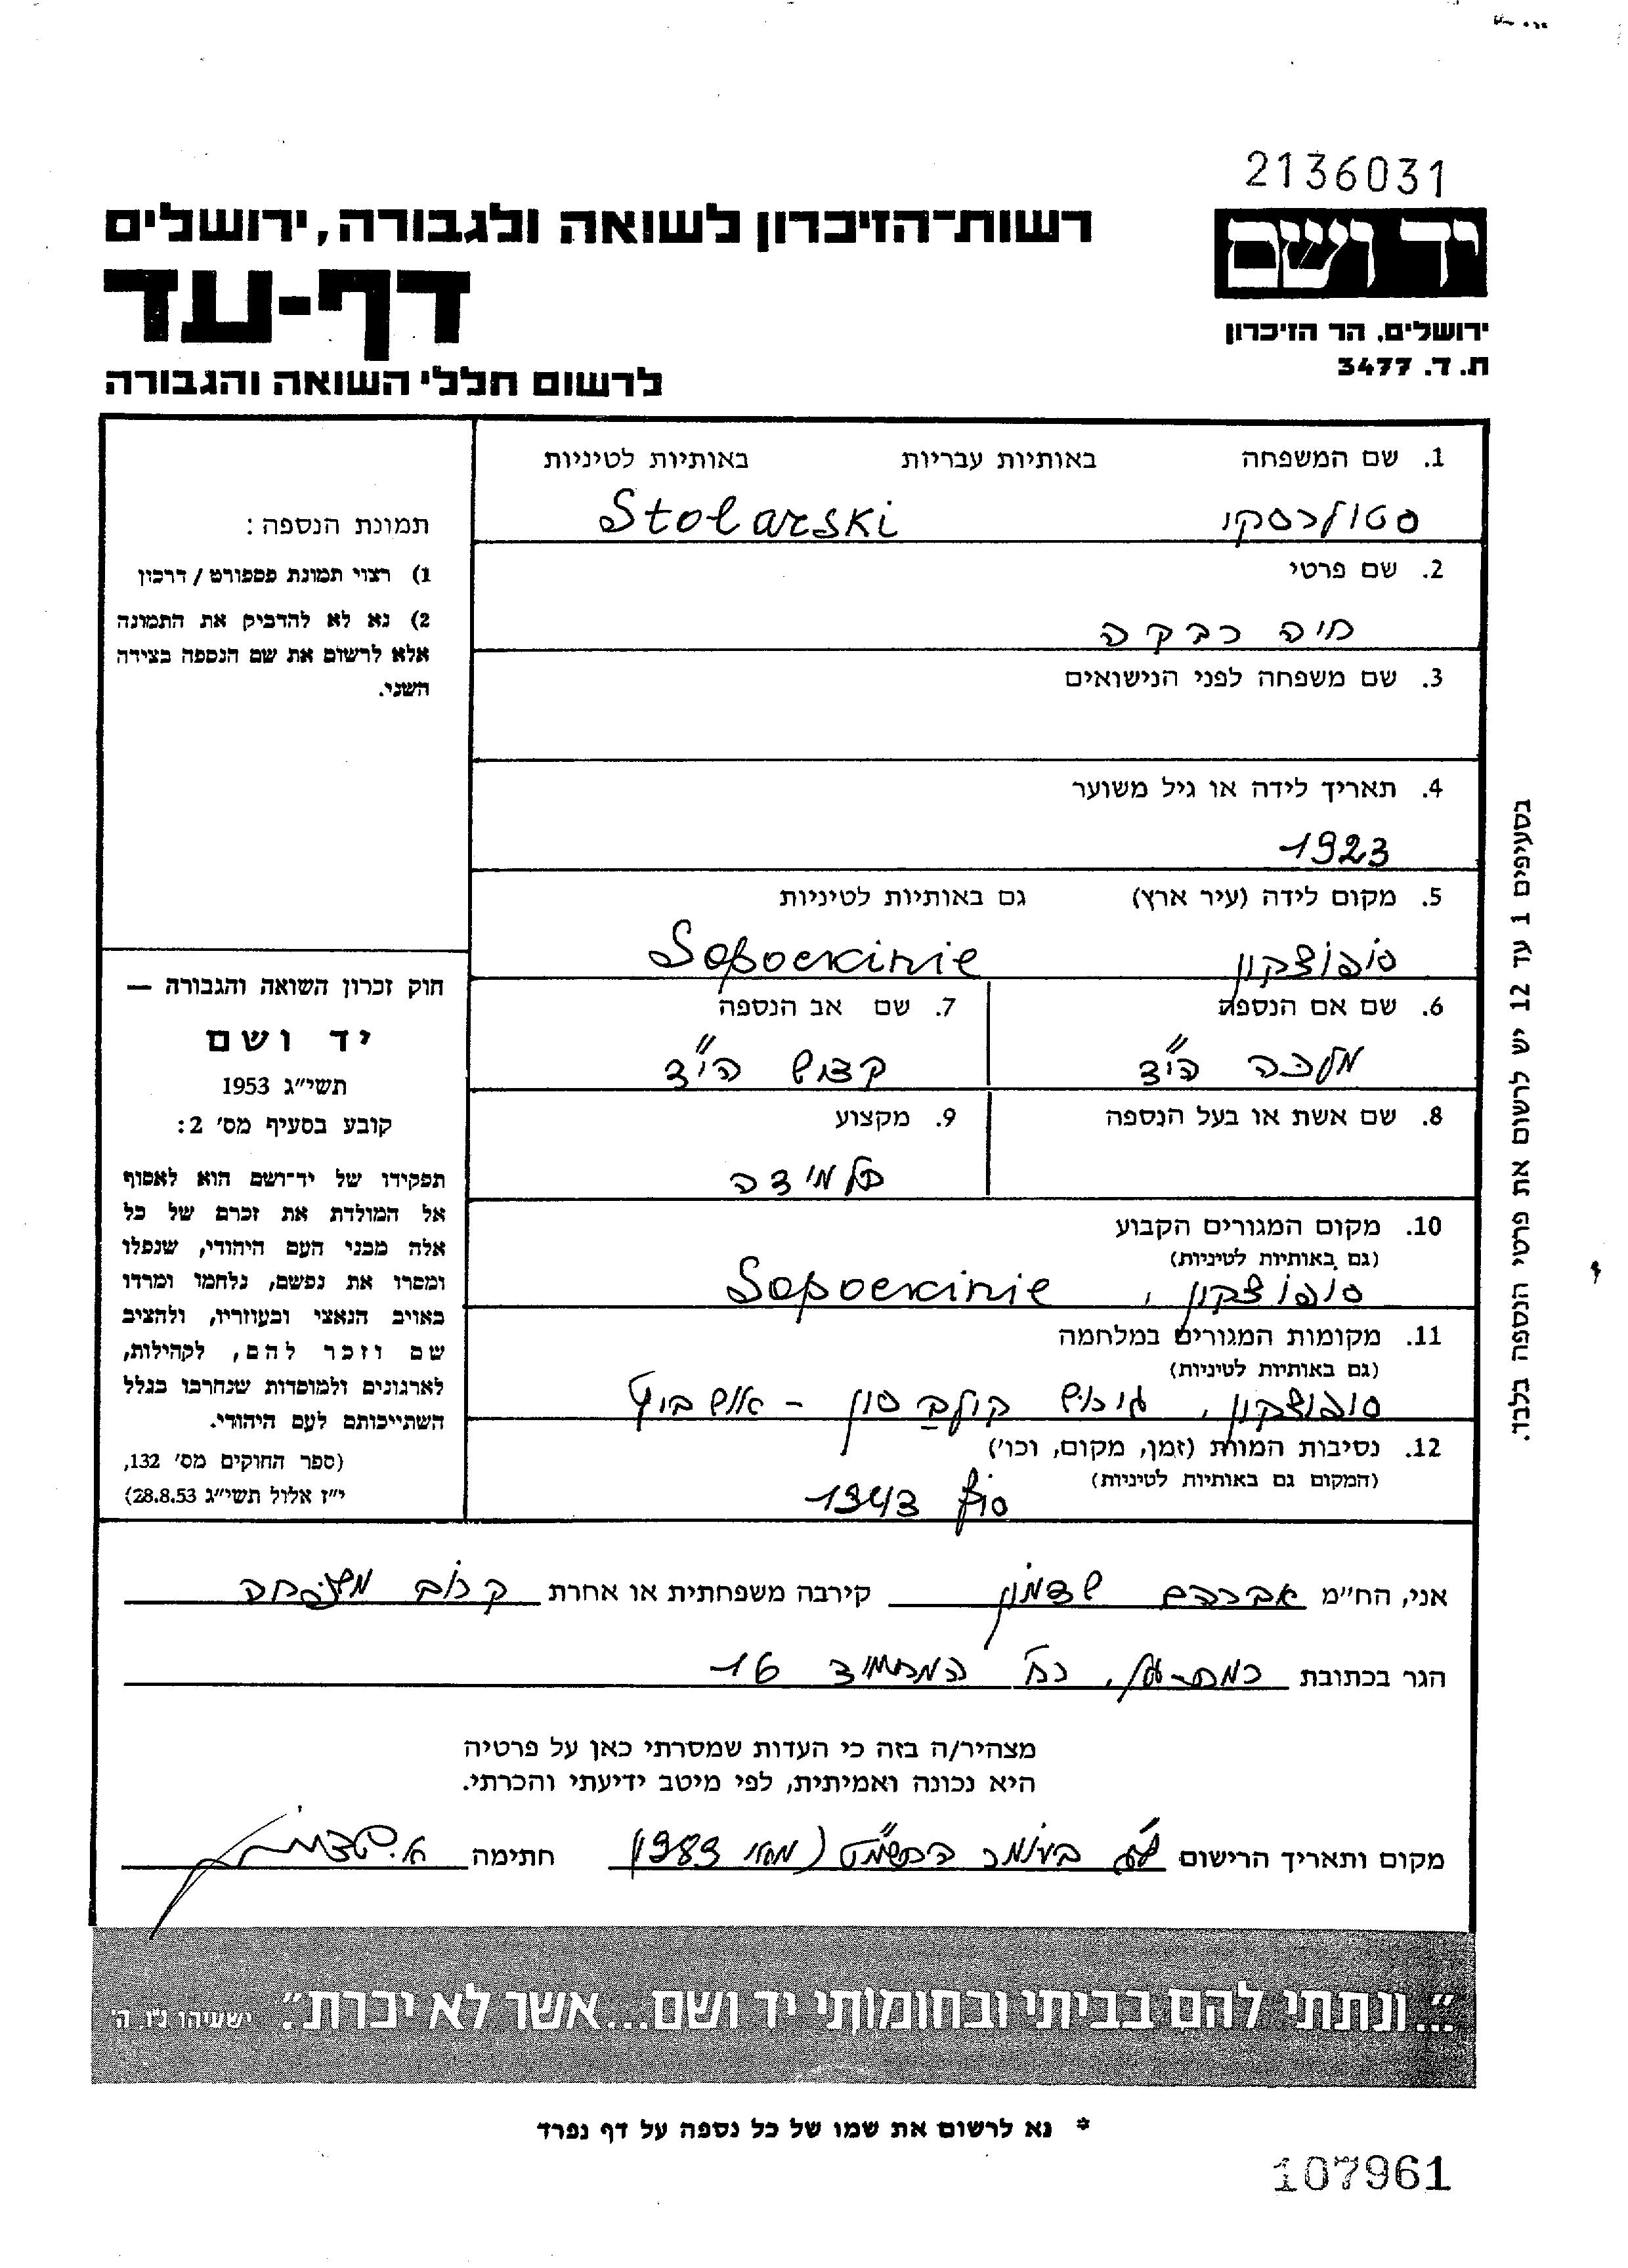 2136031
רשות־הזיכרון לשואה ולגבורה, ירושלים
יד ושם
דף-עד
ירושלים, הר הזיכרון
ת.ד. 3477
לרשום חללי השואה והגבורה
1. שם המשפחה באותיות עבריות באותיות לטיניות
סטולרסקי Stolarski
2. שם פרטי
חיה רבקה
3. שם משפחה לפני הנישואים
4. תאריך לידה או גיל משוער
1923
5. מקום לידה (עיר ארץ) גם באותיות לטיניות
סופוצקין Sopockinie
6. שם אם הנספה 7. שם אב הנספה
מלכה הי״ד קדוש הי״ד
8. שם אשת או בעל הנספה 9. מקצוע
תלמידה
10. מקום המגורים הקבוע
(גם באותיות לטיניות)
סופוצקין, Sopockinie
11. מקומות המגורים במלחמה
(גם באותיות לטיניות)
סופוצקין, גיטו קולבסין - אושביץ
12. נסיבות המוות (זמן, מקום, וכו׳)
(המקום גם באותיות לטיניות)
סוף 1943
תמונת הנספה:
1) רצוי תמונת פספורט/דרכון
2) נא לא להדביק את התמונה
אלא לרשום את שם הנספה בצידה
השני.
חוק זכרון השואה והגבורה —
יד ושם
תשי״ג 1953
קובע בסעיף מס׳ 2:
תפקידו של יד־ושם הוא לאסוף
אל המולדת את זכרם של כל
אלה מבני העם היהודי, שנפלו
ומסרו את נפשם, נלחמו ומרדו
באויב הנאצי ובעוזריו, ולהציב
שם וזכר להם, לקהילות,
לארגונים ולמוסדות שנחרבו בגלל
השתייכותם לעם היהודי.
(ספר החוקים מס׳ 132,
י״ז אלול תשי״ג 28.8.53)
בסעיפים 1 עד 12 יש לרשום את פרטי הנספה בלבד.
אני, הח״מ אברהם קירבה משפחתית או אחרת קרוב משפחה
הגר בכתובת רמת-גן, רח׳ 16
מצהיר/ה בזה כי העדות שמסרתי כאן על פרטיה
היא נכונה ואמיתית, לפי מיטב ידיעתי והכרתי.
מקום ותאריך הרישום ל״ג בעומר התשמ״ט (מאי 1989) חתימה
״...ונתתי להם בביתי ובחומותי יד ושם...אשר לא יכרת״. ישעיהו נ״ו, ה׳
* נא לרשום את שמו של כל נספה על דף נפרד
107961